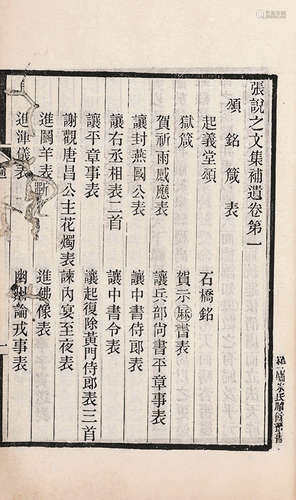 張說之文集補遺卷第一
頌 銘 箴 表
起義堂頌 石橋銘
獄箴 賀示麻書表
賀祈雨感應表 讓兵部尚書平章事表
讓封燕國公表 讓中書侍郎表
讓右丞相表二首 讓中書令表
讓平章事表 讓起復除黃門侍郎表三首
謝觀唐昌公主花燭表 諫內宴至夜表
進鬬羊表 進佛像表
進渾儀表 幽州論戎事表